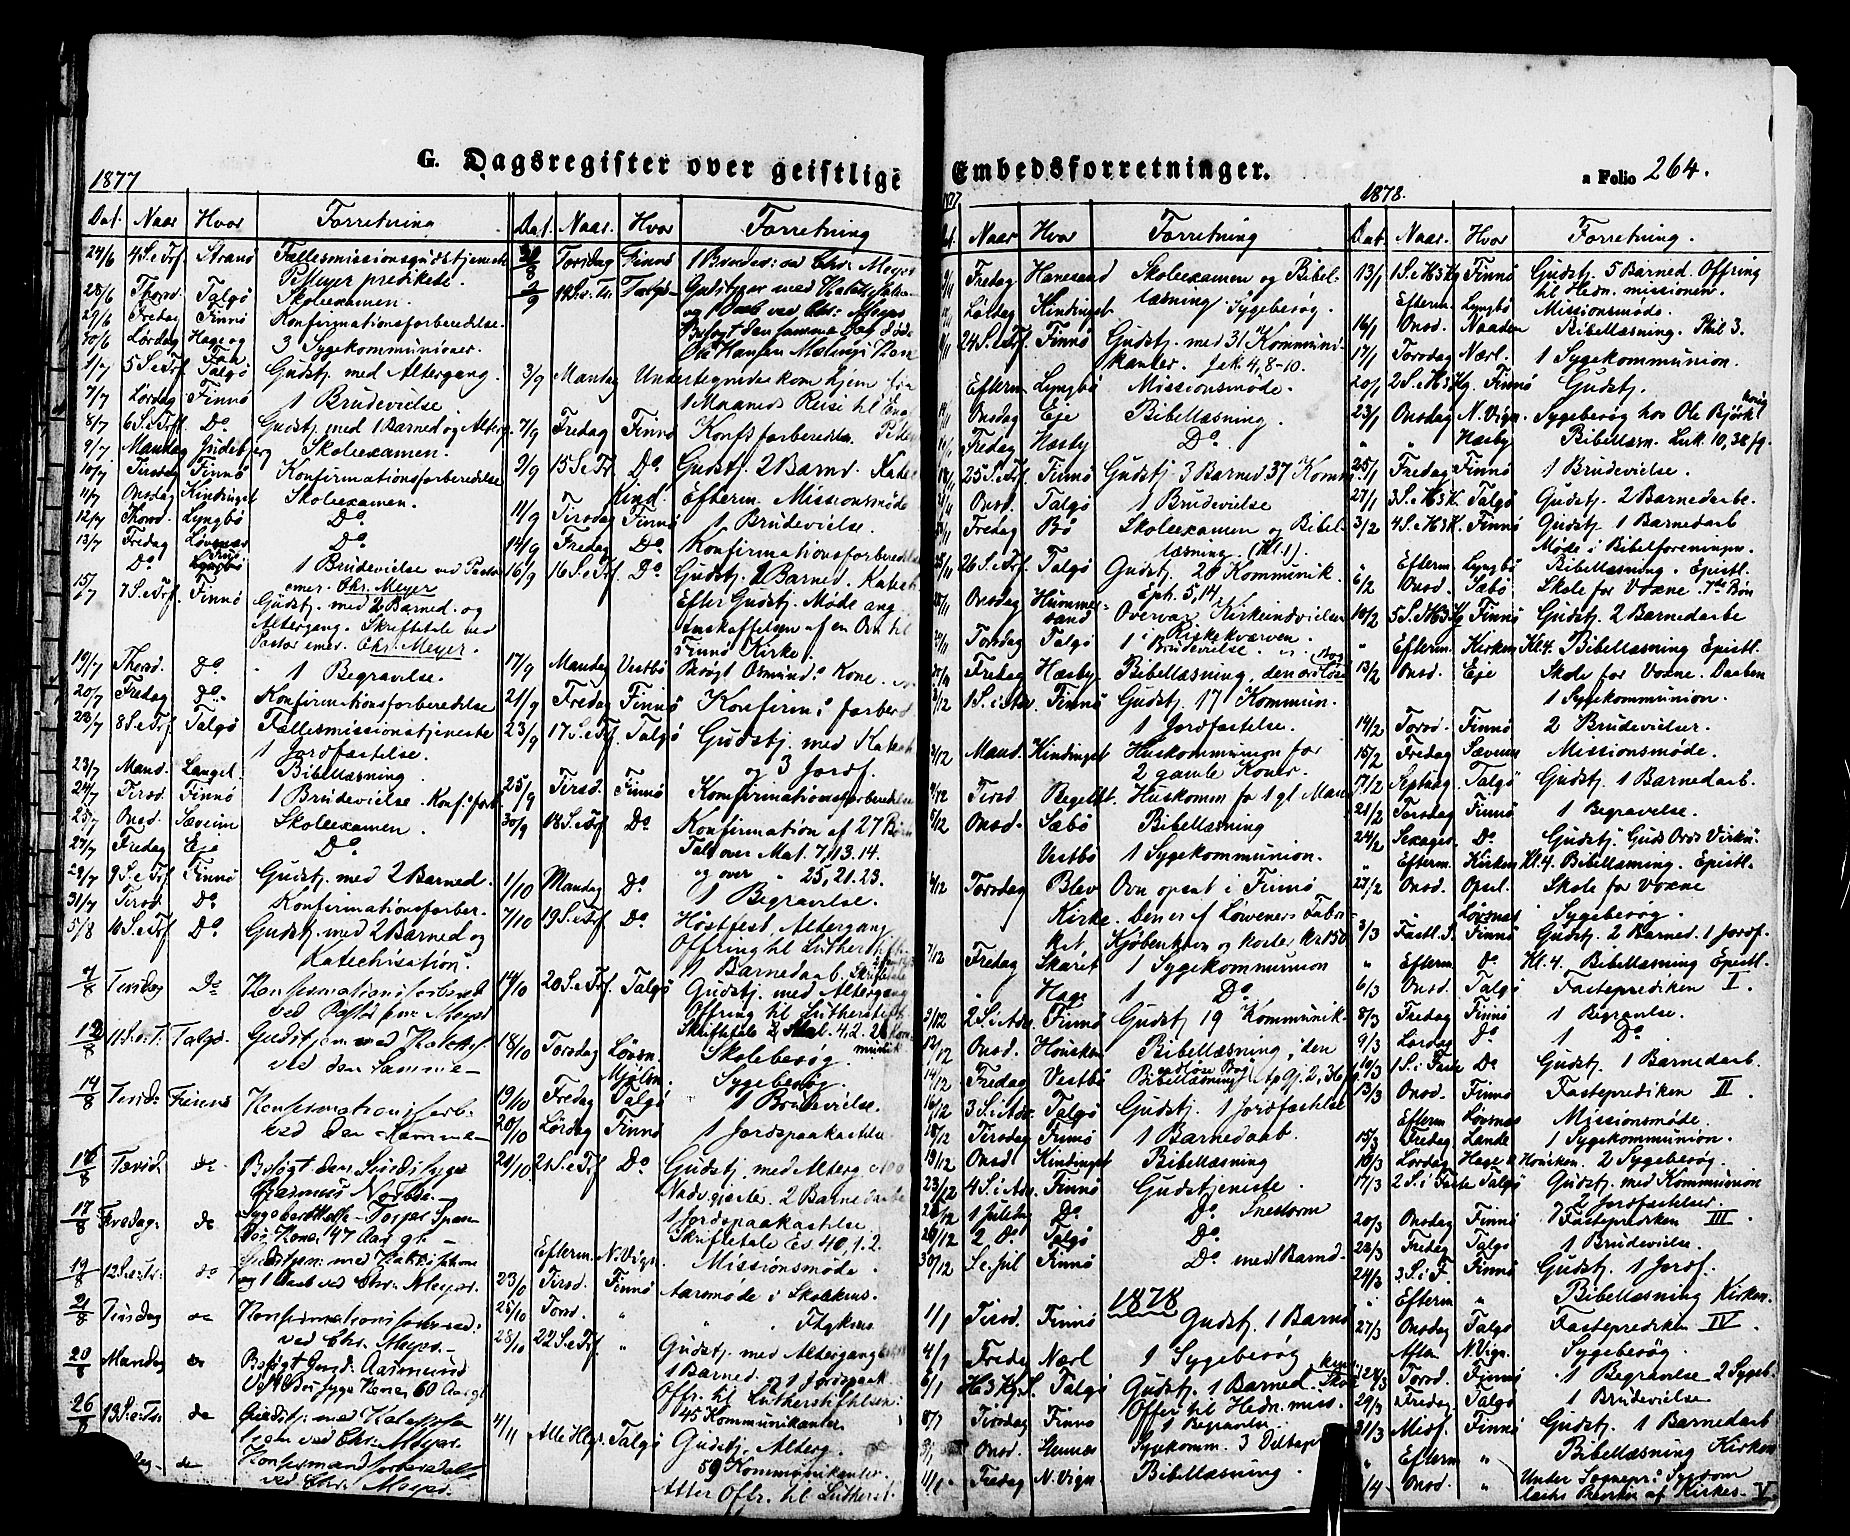 G. Dagsregister over geistlige Embedsforretninger.
a Folio 264.
1877
Dat. Naar Hvor Forretning
24/6 4 S. e Trf. Stranö Fællesmissionsgudstjeneste
P Meyer predikede.
28/6 Thorsd. Talgö Skoleexamen.
29/6 Fredag Finnö Konfirmationsforberedelse.
30/6 Lördag Hage og 3 Sygekommunioner.
1/7 5 S e Trf Talgö Gudstj. med Altergang.
7/7 Lördag Finnö 1 Brudevielse
8/7 6 S. e Trf. Do Gudstj. med 1 Barned. og Alterg.
9/7 Mandag Gudeberg Skoleexamen.
10/7 Tirsdag Finnö Konfirmationsforberedelse
11/7 Onsdag Kindinget Skoleexamen.
12/7 Thorsd. Lyngbö Do
13/7 Fredag Lövsnes Do
Do 1 Brudevielse ved Pastor
emer. Chr. Meyer
15/7 7 S. e Trf. Finnö Gudstj. med 2 Barned. og
Altergang. Skriftetale ved
Pastor emer. Chr. Meyer.
19/7 Thorsd. Do 1 Begravelse.
20/7 Fredag Do Konfirmationsforberedelse
22/7 8 S. e Trf. Talgö Fællesmissionstjeneste
1 Jordfæstelse.
23/7 Mand. Langel. Bibellæsning
24/7 Tirsd. Finnö 1 Brudevielse. Konf. forb.
25/7 Onsd. Sæveim Skoleexamen.
27/7 Fredag Eje Do
29/7 9 S. e Trf. Finnö Gudstj. med 2 Barned.
31/7 Tirsd. Do Konfirmationsforber.
5/8 10 S. e Trf. Do Gudstj. med 2 Barned og
Katechisation.
7/8 Tirsdag Do Konfirmationsforbered
ved Pastor em. Meyer
12/8 11 S. e. T. Talgö Gudstjen med Katekis
ved den samme
14/8 Tirsd. Finnö Konfirmationsforb.
ved den samme
16/8 Torsd. do Besögt den Sindssyge
Rasmus Norböe
17/8 Fredag do
47 Aar gl.
19/8 12 S. e. Tr. do Gudstjen: med Katekisation
og 1 Daab ved Chr: Meyer.
21/8 Tirsdag do Konfirmationsforbered:
ved Chr. Meyer.
20/8 Mandag do Besögt Gaard. Aasmund
Vestbös syge Kone, 60 Aar gl
26/8 13 S. e. Tr. do Gudstj: med Katekisa
tion ved Chr. Meyer.
do Konfirmandforberedelse
ved Chr. Meyer.
Dat. Naar. Hvor Forretning
30/8 Torsdag Finnö 1 Brudev: ved Chr: Meyer
2/9 14 S. e. Tr. Talgö Gudstjen med Katekisa
og 1 Daab ved Chr: Meyer
Besögt den samme Dag döde
Ole Hansen
3/9 Mandag Undertegnede kom hjem fra
1 Maaneds Reise til
7/9 Fredag Finnö Konfs forberedelse
9/9 15 S. e Tr. Do Gudstj. 2 Barned. Katek
Kind. Efterm Missionsmöde
11/9 Tirsdag Finnö 1 Brudevielse.
14/9 Fredag Do Konfirmationsforberedelse
16/9 16 S. e Trf. Do Gudstj. 2 Barned. Katek
Efter Gudstj. Möde ang.
Anskaffelsen af en Ovn til
Finnö Kirke.
17/9 Mandag Vestbö Besögt Osmund's Kone.
21/9 Fredag Finnö Konfirm: forbered
23/9 17 S. e Trf. Talgö Gudstj. med Katek
og 3 Jordf.
25/9 Tirsd. Finnö Konfirmationsforberedelse
30/9 18 S. e Trf. Do Konfirmation af 27 Börn
Tale over Mat. 7, 13. 14.
og over " 25, 21. 23.
1/10 Mandag Do 1 Begravelse.
7/10 19 S. e Trf. Do Höstfest. Altergang
Offring til Lutherstift.
1 Barnedaab. Skriftetale
14/10 20 S. e Trf. Talgö Gudstj. med Altergang
Offring til Lutherstift.
Skriftetale 4. 2. 28 kom-
munik
18/10 Torsdag Lövsn. Skolebesög
Mjöln. Sygebesög
19/10 Fredag Talgö 1 Brudevielse.
20/10 Lördag Finnö 1 Jordspaakastelse
21/10 21 S. e Trf. Do Gudstj. med Alterg.
Nadvgjeste. 2 Barnedaab
1 Jordspaakastelse.
Skriftetale Es. 40, 1. 2.
Efterm. N. Vign. Missionsmöde.
23/10 Tirsd. Finnö Aarsmöde i Skolekms.
25/10 Torsd. " " Ftgkms
28/10 22 S. e Trf. " Gudstj. med Altergang
1 Barned. og 1 Jordspaak.
Offr. til Lutherstiftelsen
45 Kommunikanter
4/11 Alle Helg. Talgö Gudstj. Alterg.
59 Kommunikanter
Atter Offr. til Lutherst.
Naar Hvor Forretning
9/11 Fredag Hanesand Skoleexamen og Bibel-
læsning. Sygebesög.
Löldag Kindinget
11/11 24 S. e Trf. Finnö Gudstj. med 31 Kommuni-
kanter. Jak. 4, 8-10.
Efterm Lyngbö Missionsmöde.
Onsdag Eje Bibellæsning.
Fredag Hæsby Do
18/11 25 S. e Trf. Finnö Gudstj. 3 Barned 37 Komm.
Onsd. Talgö 1 Brudevielse
Fredag Bö Skoleexamen og Bibel-
læsning. (Kl. 1).
25/11 26 S. e Trf. Talgö Gudstj. 20 Kommunik.
Eph. 5, 14.
Onsdag Hummer- Overvar Kirkeindvielsen
sand i Riskekværven.
29/11 Torsdag Talgö 1 Brudevielse
Fredag Hæsby. Bibellæsning, den ordlöse Bog
2/12 1 S. i Adv. Finnö Gudstj. 17 Kommun.
1 Jordfæstelse.
3/12 Mand. Kindinget Huskommunion for
2 gamle Koner.
4/12 Tirsd Huskomm for 1 gl Mand
5/12 Onsd. Sæbö Bibellæsning
Vestbö 1 Sygekommunion.
6/12 Torsdag Blev Ovn opsat i Finnö
Kirke. Den er af Lövener's Fabri-
ket. Kjöbenhavn og koster kr 150
7/12 Fredag Skaret 1 Sygekommunion
Hage 1 Do
9/12 2 S. i Adv. Finnö Gudstj 19 Kommunik-
12/12 Onsd. Höncken Bibellæsning, den
ordlöse Bog
14/12 Fredag Vestbö Bibellæsning Ap Gj. 2, 36 fg
16/12 3 S. i Adv. Talgö Gudstj. 1 Jordfæstelse
18/12 Tirsdag Finnö 1 Barnedaab.
19/12 Onsd Kindinget Bibellæsning
23/12 4 S. i Adv. Finnö Gudstjeneste
25/12 1 Juledag Do Do Snestorm
26/12 2 Do Talgö Do
30/12 S. e. Jul Finnö Do med Barnd.
1878
1/1 Tirsd. Finnö Gudstj. 1 Barned
4/1 Fredag Nærl 1 Sygebesög
6/1 H3 Kg. S. Talgö Gudstj. 1 Barned.
Offer til Hedn. miss.
8/1 Tirsdag Finnö 1 Begravelse
9/1 Onsd. Stennes Sygekomm. 3 Deltager
11/1 Fredag N. Vign Bibellæsning.
1878.
Dat Naar. Hvor. Forretning.
13/1 1 S. e H3 Kg Finnö Gudstj. 5 Barned. Offring
til Hedn. missionen.
Efterm Lyngbö Missionsmöde.
16/1 Onsd. Naaden Bibellæsning. Phil 3.
17/1 Torsdag Nærl. 1 Sygekommunion.
20/1 2 S. e H3 Kg. Finnö Gudstj.
23/1 Onsdag N. Vign. Sygebesög hos Ole Björk
" " Hæsby Bibellæsn. Luk. 10, 38 fg.
25/1 Fredag Finnö 1 Brudevielse
27/1 3 S. e H3 K. Talgö Gudstj. 2 Barnedaabe.
3/2 4 S. e H3 K. Finnö Gudstj. 1 Barnedaab
Möde i Bibelforeningen.
" Efterm Lyngbö Bibellæsning. Epistl.
6/2 Onsd. Sæbö Skole for Voxne. 7de Bön
10/2 5 S. e H3 Kg Finnö Gudstj. 2 Barnedaabe
" Efterm. Kirken Kl. 4. Bibellæsning Epistl.
13/2 Onsd. Eje Skole for Voxne. Daaben
1 Sygekommunion.
14/2 Torsd. Finnö 2 Brudevielser.
15/2 Fredag Sæveim Missionsmöde.
17/2 Septuag Talgö Gudstj. 1 Barnedaab.
21/2 Torsdag Finnö 1 Begravelse.
24/2 Sexages. Do Gudstj. Guds Ords Virkn.
" Efterm Kirken Kl. 4. Bibellæsning. Epistl.
27/2 Onsd. Opsal. Skole for Voxne
Lövsnæs Sygebesög.
3/3 Fastl. S. Finnö Gudstj. 2 Barned. 1 Jordf.
" Efterm Do Kl. 4. Bibellæsning Epistl.
6/3 Onsd. Talgö Fasteprediken I.
8/3 Fredag Finnö 1 Begravelse.
9/3 Lördag Do 1 Do
10/3 1 S. i Faste Do Gudstj. 1 Barnedaab.
13/3 Onsd. Finnö Fasteprediken II.
Efterm Lövsnæs Missionsmöde.
15/3 Fredag Lande 1 Sygekommunion.
16/3 Lördag Hage & Höncken. 2 Sygebesög.
17/3 2 S. i Faste Talgö Gudstj. med Kommunion
2 Jordfæstelser.
20/3 Onsdag Finnö Fasteprediken III
22/3 Fredag Talgö 1 Brudevielse.
24/3 3 S. i F. Finnö Gudstj. 1 Jordf.
" Efterm " Bibellæsning Kirken.
27/3 Onsdag Talgö Fasteprediken IV
Aften N. Vign. Sygebesög.
28/3 Torsd. Finnö 1 Begravelse 2 Sygeb.
29/3 Fredag Talgö 1 Brudevielse.
31/3 Midf. Finnö Gudstj. 1 Barnedaab
" Efterm " Bibellæsning Kirken
/4 Onsd. " Under Sognepr:s Sygdom
V.